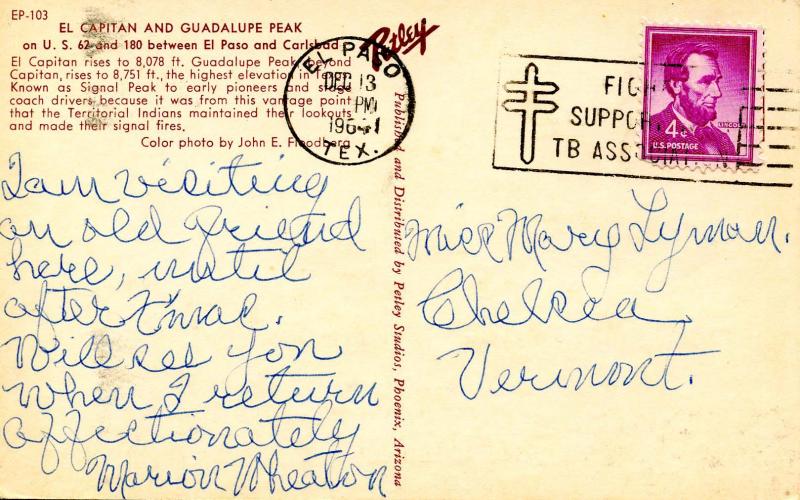 EP-103
EL CAPITAN AND GUADALUPE PEAK
on U. S. 62 and 180 between El Paso and Carlsbad
El Capitan rises to 8,078 ft. Guadalupe Peak, beyond
Capitan, rises to 8,751 ft., the highest elevation in Texas.
Known as Signal Peak to early pioneers and stage
coach drivers because it was from this vantage point
that the Territorial Indians maintained their lookouts
and made their signal fires.
Color photo by John E. Floodberg
Petley
EL PASO
DEC 13
PM
1964
TEX.
FIGHT
SUPPORT
TB ASSOCIATION
4¢
LINCOLN
U.S. POSTAGE
Published and Distributed by Petley Studios, Phoenix, Arizona
I am visiting
an old friend
here, until
after X'mas.
Will see you
when I return
affectionately
Marion Wheaton
Miss Mary Lyman.
Chelsea,
Vermont.